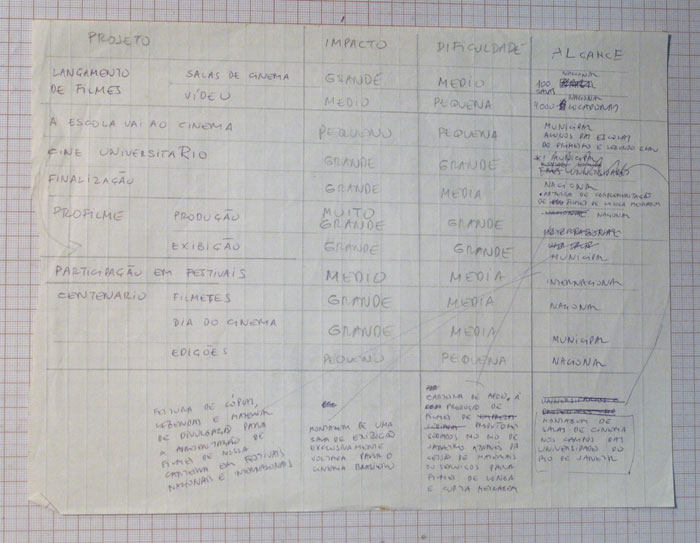 PROJETO IMPACTO DIFICULDADE ALCANCE
LANÇAMENTO DE FILMES SALAS DE CINEMA GRANDE MEDIO 100 SALAS NACIONAL
VÍDEO MEDIO PEQUENA 4000 NACIONAL LOCADORAS
A ESCOLA VAI AO CINEMA PEQUENO PEQUENA MUNICIPAL
ALUNOS DAS ESCOLAS
DE PRIMEIRO E SEGUNDO GRAU
CINE UNIVERSITARIO GRANDE GRANDE MUNICIPAL
UNIVERSIDADES
FINALIZAÇÃO GRANDE MEDIA NACIONAL
DE FILMES DE LONGA METRAGEM
PROFILME PRODUÇÃO MUITO GRANDE GRANDE NACIONAL
EXIBIÇÃO GRANDE GRANDE MUNICIPAL
PARTICIPAÇÃO EM FESTIVAIS MEDIO MEDIA INTERNACIONAL
CENTENARIO FILMETES GRANDE MEDIA NACIONAL
DIA DO CINEMA GRANDE MEDIA MUNICIPAL
EDIÇÕES PEQUENO PEQUENA NACIONAL
FEITURA DE CÓPIAS,
LEGENDAS E MATERIAL
DE DIVULGAÇÃO PARA
A APRESENTAÇÃO DE
FILMES DE NOSSA
CARTEIRA EM FESTIVAIS
NACIONAIS E INTERNACIONAIS
MONTAGEM DE UMA
SALA DE EXIBIÇÃO
EXCLUSIVAMENTE
VOLTADA PARA O
CINEMA BRASILEIRO
CARTEIRA DE APOIO À
PRODUÇÃO DE
FILMES DE
PRODUTORAS
SEDIADAS NO RIO DE
JANEIRO ATRAVÉS DA
CESSÃO DE MATERIAIS
OU SERVIÇOS PARA
FILMES DE LONGA
E CURTA METRAGEM
MONTAGEM DE
SALAS DE CINEMA
NOS CAMPUS DAS
UNIVERSIDADES DO
RIO DE JANEIRO